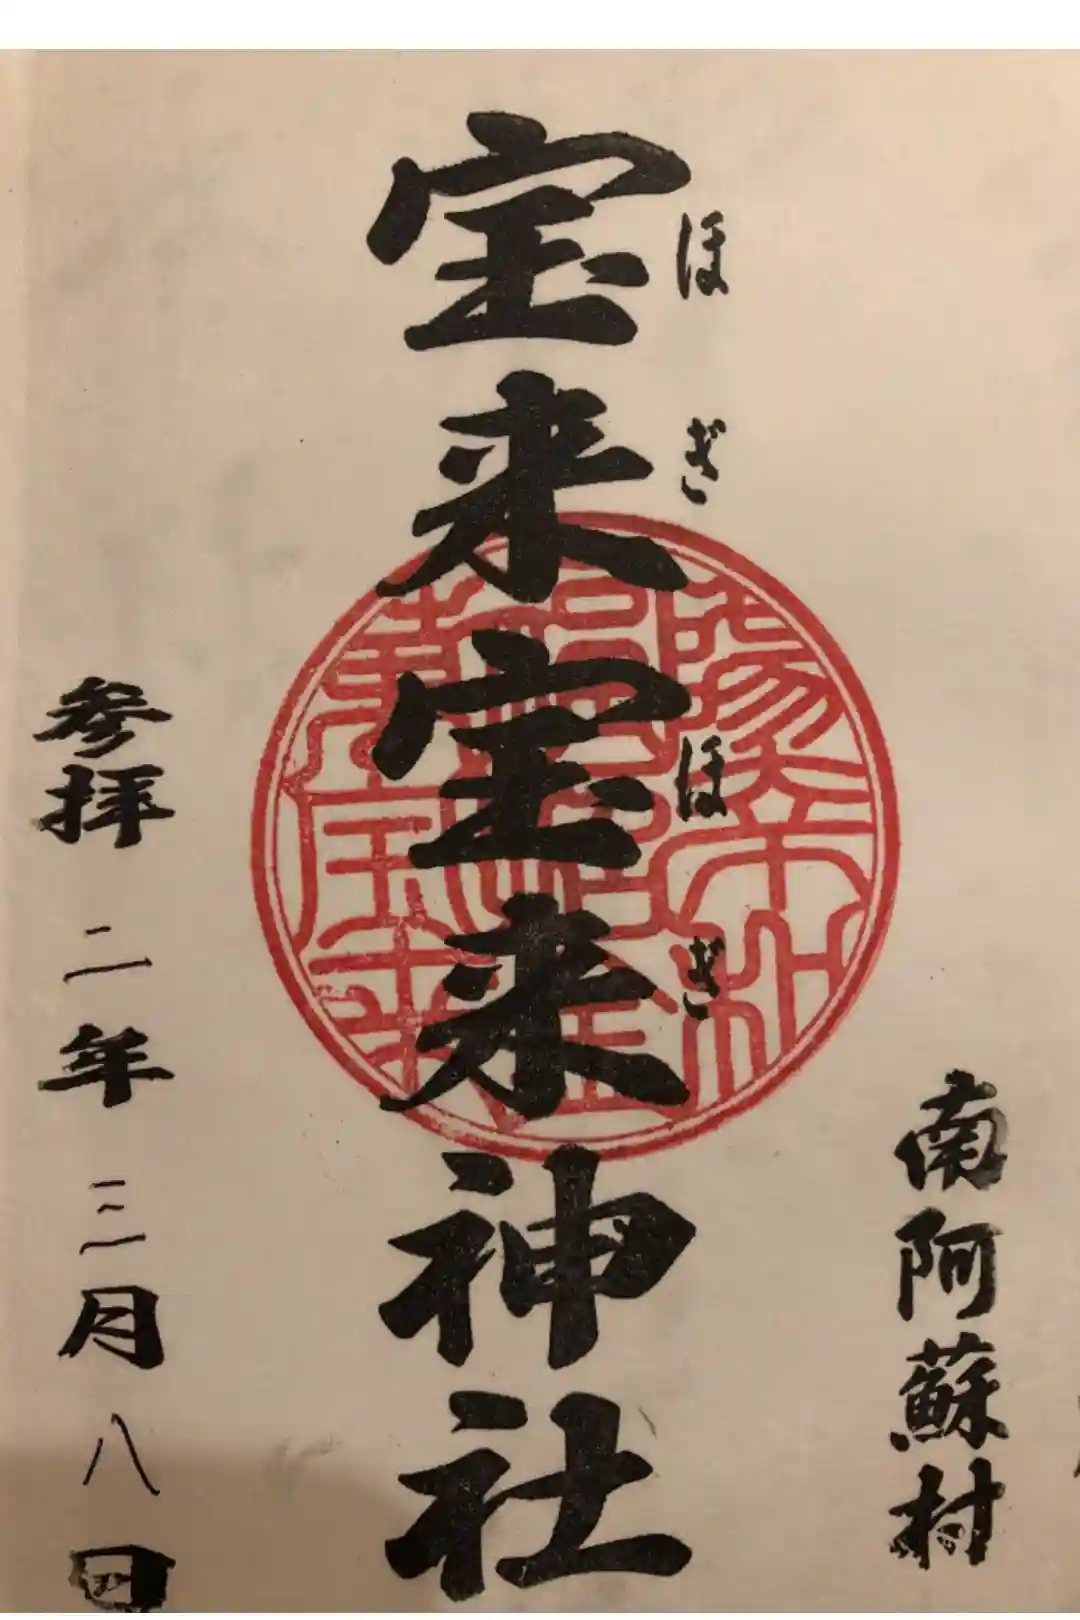 南阿蘇村
宝来宝来神社
ほぎほぎ
参拝 二年 三月 八日